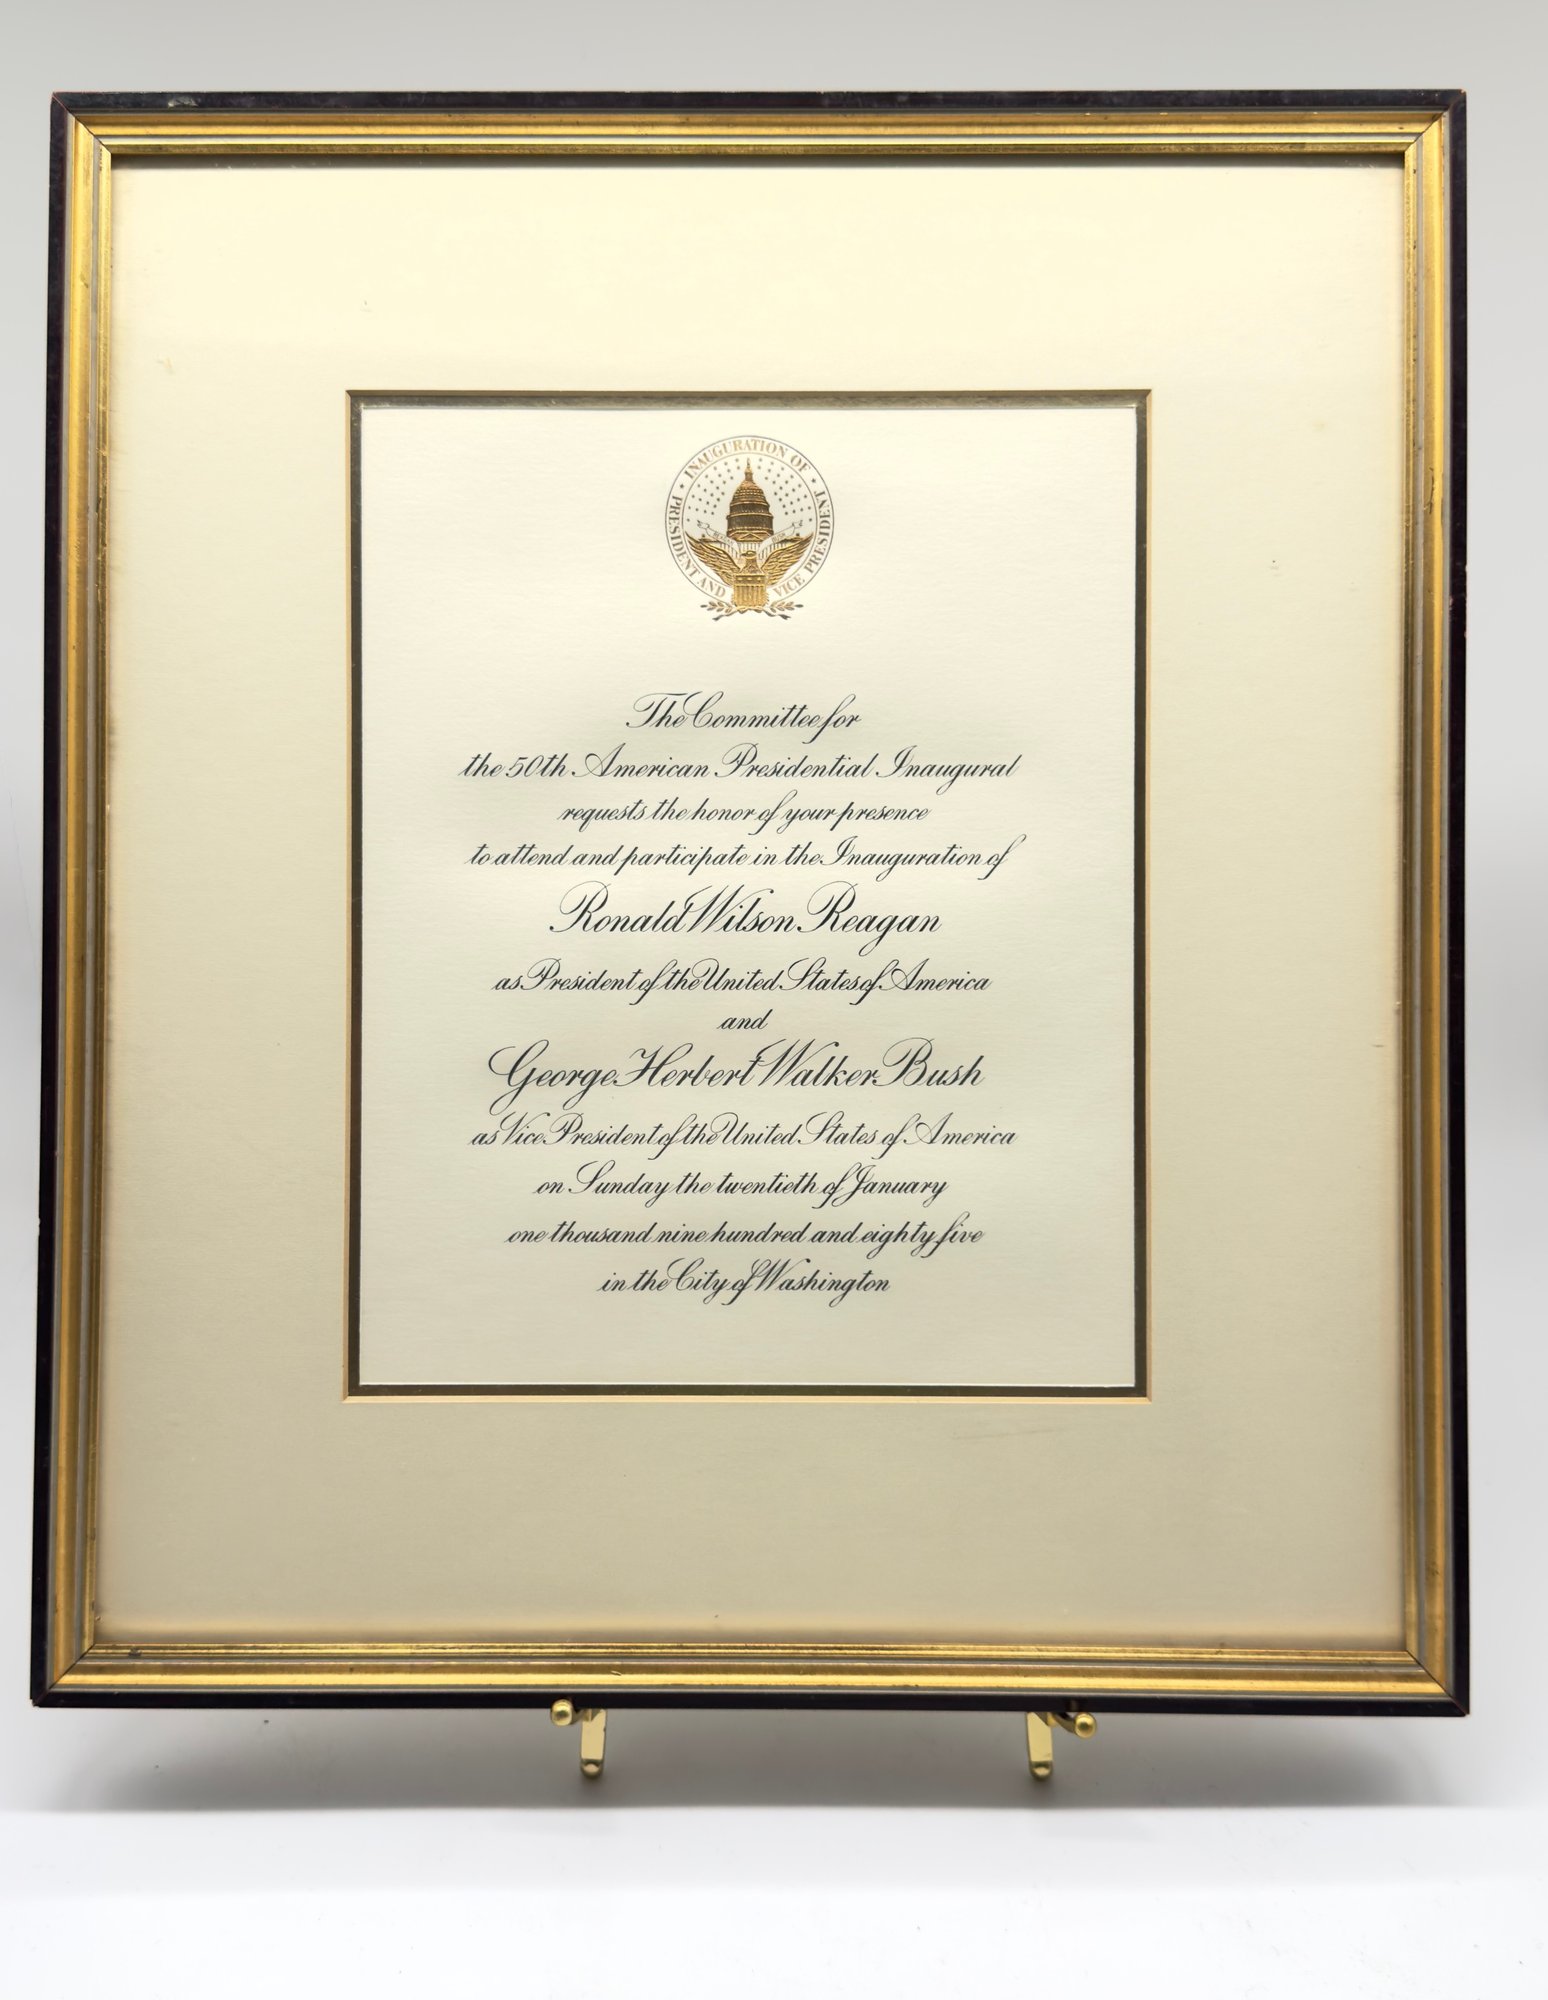 INAUGURATION OF
PRESIDENT AND VICE PRESIDENT
The Committee for
the 50th American Presidential Inaugural
requests the honor of your presence
to attend and participate in the Inauguration of
Ronald Wilson Reagan
as President of the United States of America
and
George Herbert Walker Bush
as Vice President of the United States of America
on Sunday the twentieth of January
one thousand nine hundred and eighty five
in the City of Washington